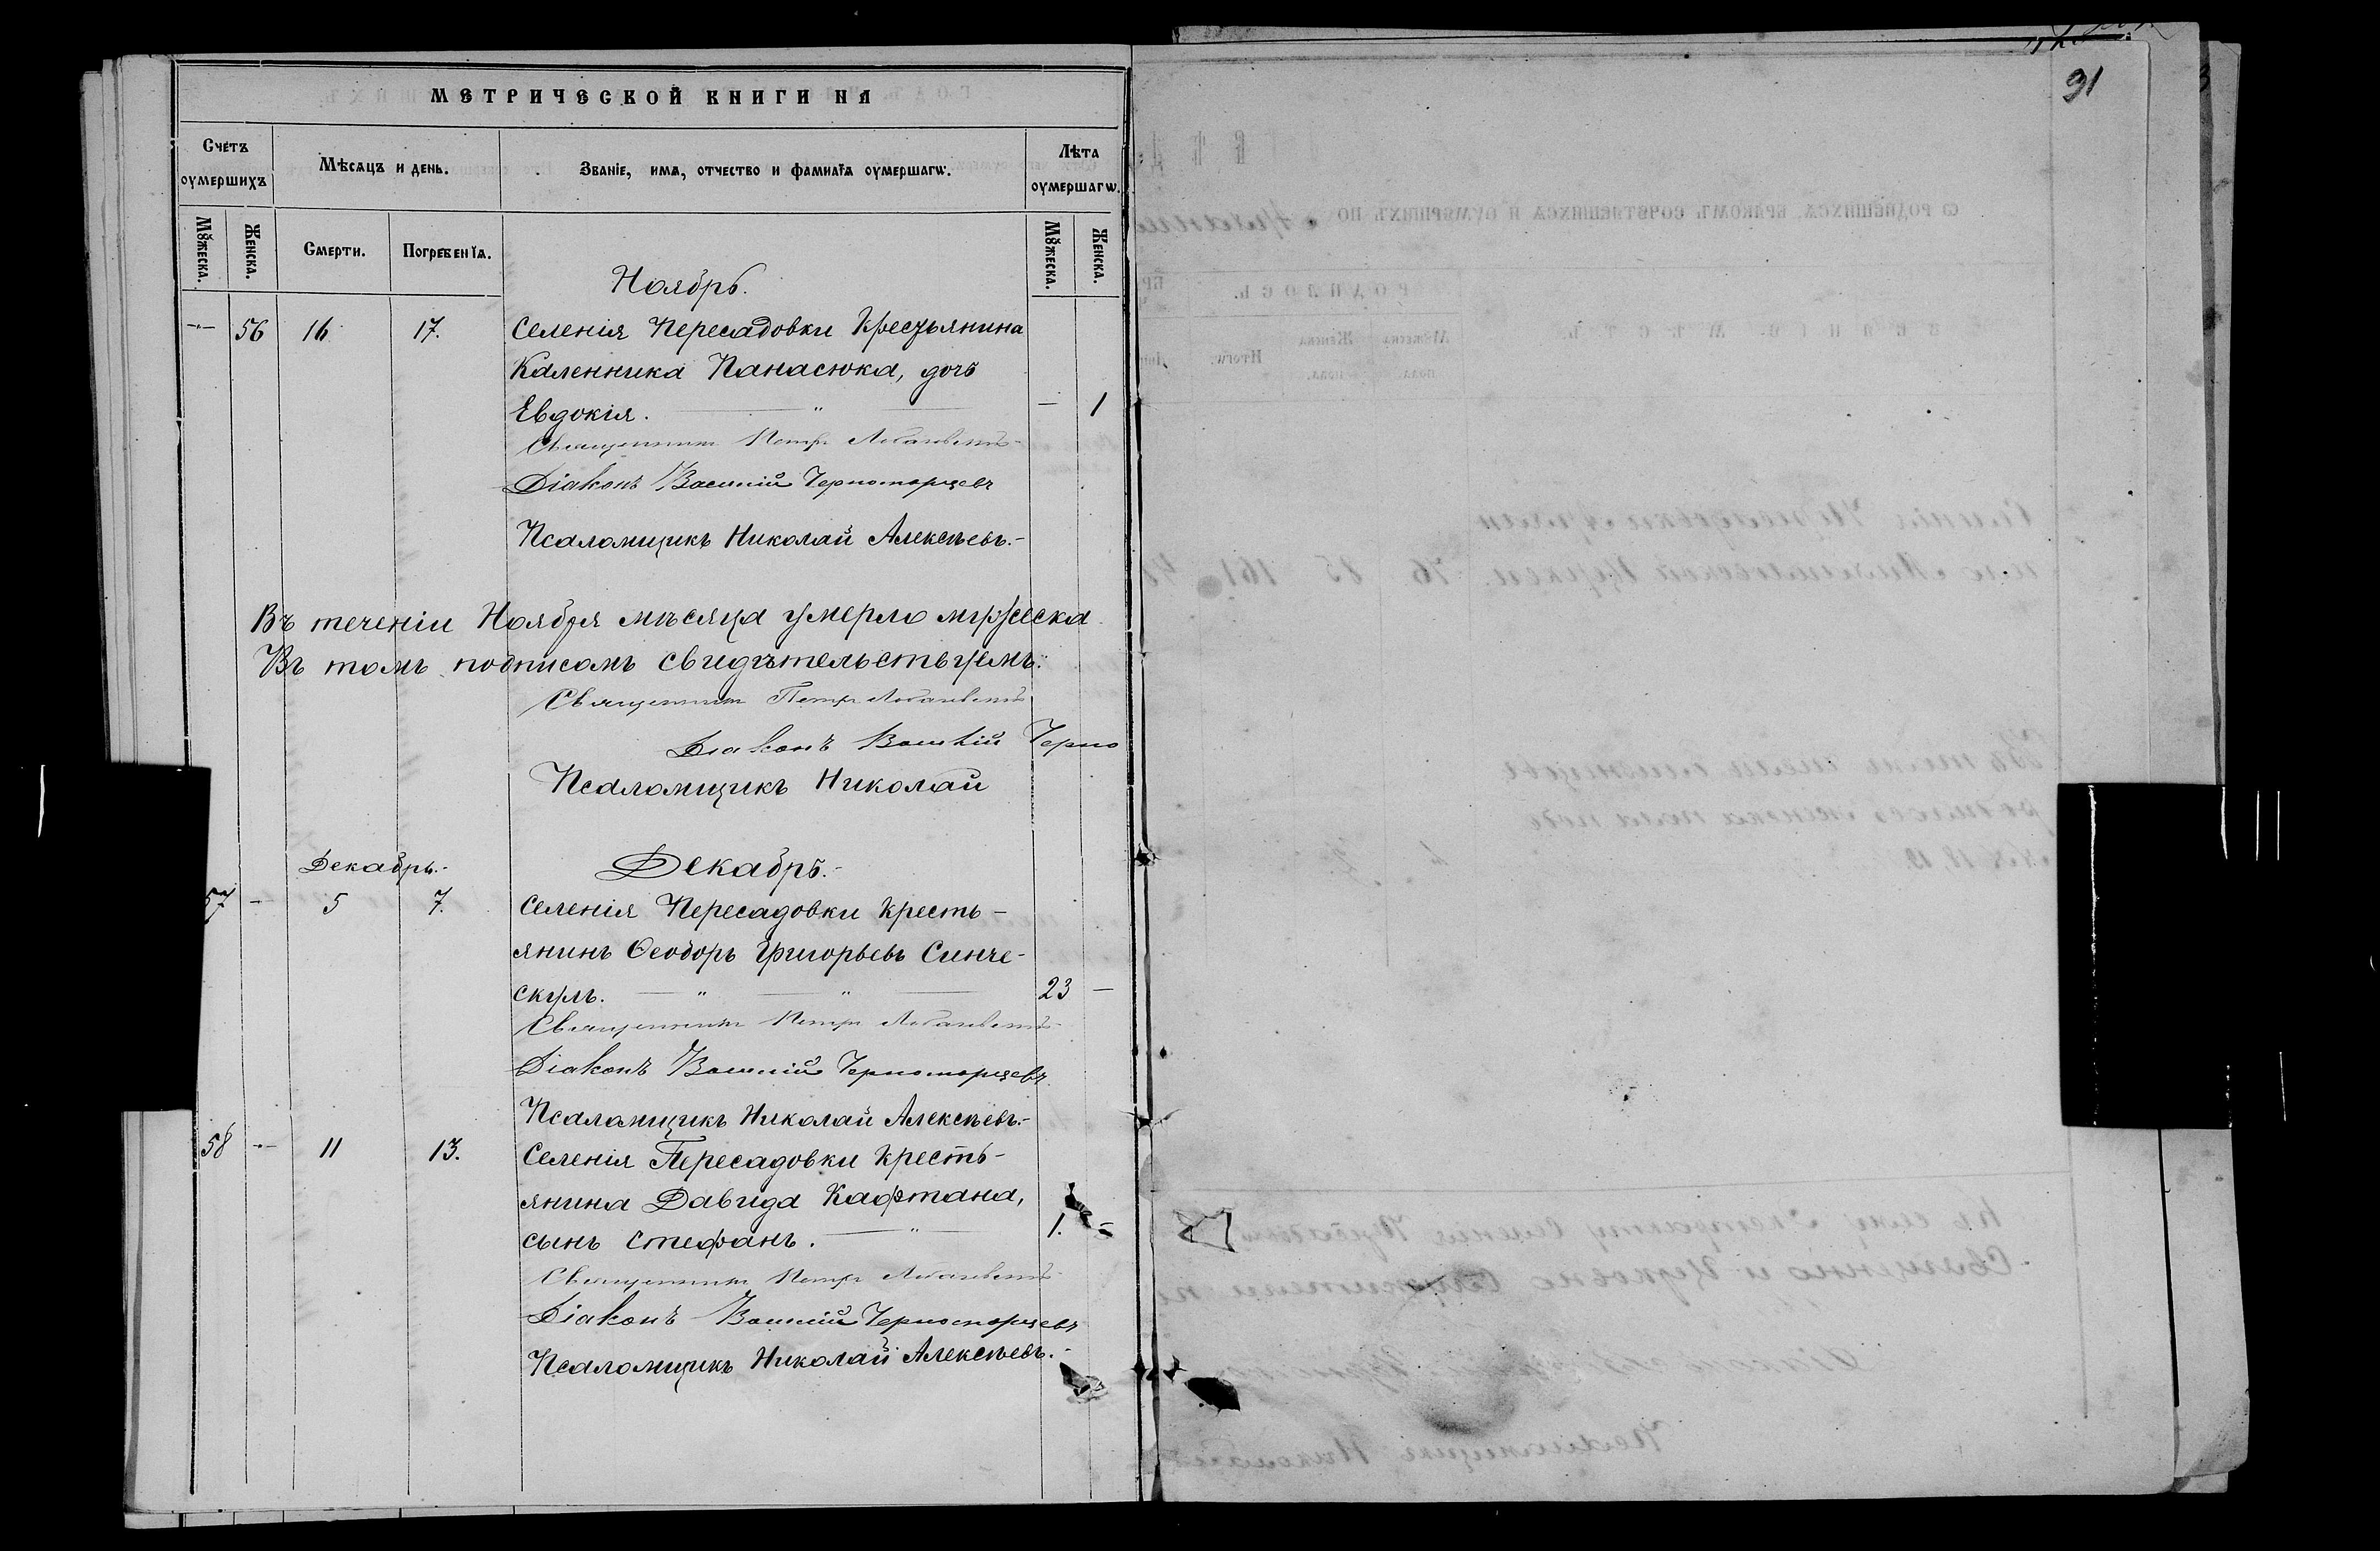 МЕТРИЧЕСКОЙ КНИГИ НА
Счетъ оумершихъ
Мѣсяцъ и день.
Званіе, имя, отчество и фамиліа оумершагѡ.
Лѣта оумершагѡ.
Мꙋжеска. Женска. Смерти. Погребеніѧ. Мꙋжеска. Женска.
91
Ноябрь.
— 56 16 17. Селенія Пересадовки Крестьянина
Каленника Панасюка, дочь
Евдокія. — 1
Священникъ Петръ
Діаконъ Василій Черноморцевъ
Псаломщикъ Николай Алексѣевъ.-
Въ теченіи Ноября мѣсяца умерло мужеска
Въ томъ подписомъ свидѣтельствуемъ:
Священникъ Петръ
Діаконъ Василій Черно
Псаломщикъ Николай
Декабрь.- Декабрь.-
57 - 5 7. Селенія Пересадовки кресть-
янинъ Ѳеодоръ Григорьевъ Синче-
скулъ. 23 —
Священникъ Петръ
Діаконъ Василій Черноморцевъ
Псаломщикъ Николай Алексѣевъ.-
58 — 11 13. Селенія Пересадовки кресть-
янина Давида Кафтана,
сынъ Стефанъ. 1. -
Священникъ Петръ
Діаконъ Василій Черноморцевъ
Псаломщикъ Николай Алексѣевъ.-